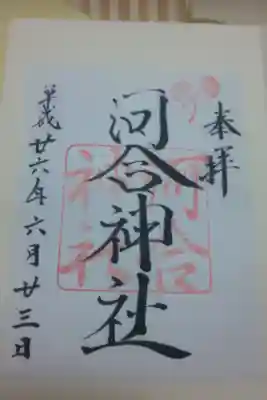 奉拝
河合神社
河合
神社
平成廿六年六月廿三日